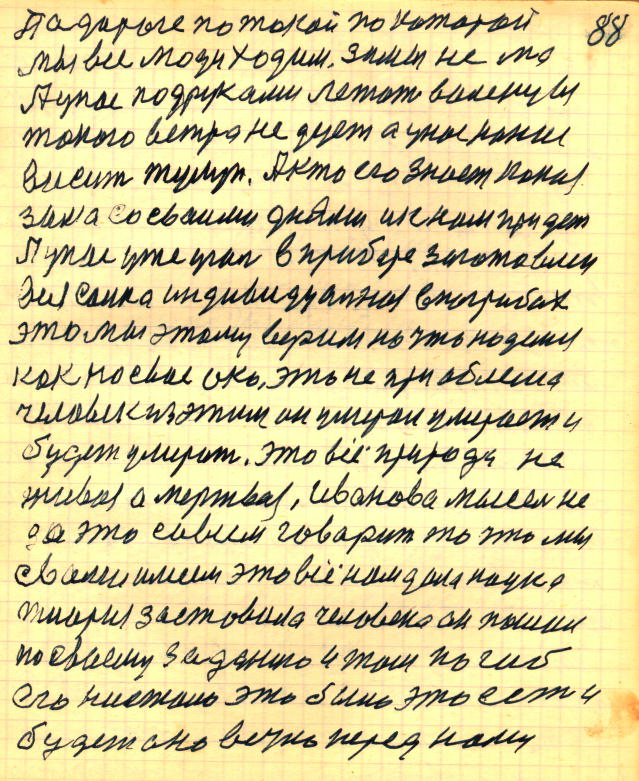 88
Па дароге по токой по которой
мы все люди ходим. Зимы не
под руками летят
токого ветра не дует а у нас
висит тулуп. А кто его знает какая
зима со своими днями и к нам придет
уже упал в прибаре заготовлен
индивидуалная в погрибах
это мы этому верим но что надеемся
как на свое око, это не приоблема
человек из этим он умерал умерает и
будет умерат. это всё природа не
живая а мертвая, Иванова мысел не
да это совсем говарит то что мы
с вами имеем это всё нам дала наука
тиория заставила человека он пошол
по своему заданию и там погиб
его нистало это было это есть и
будет оно вечно перед нами